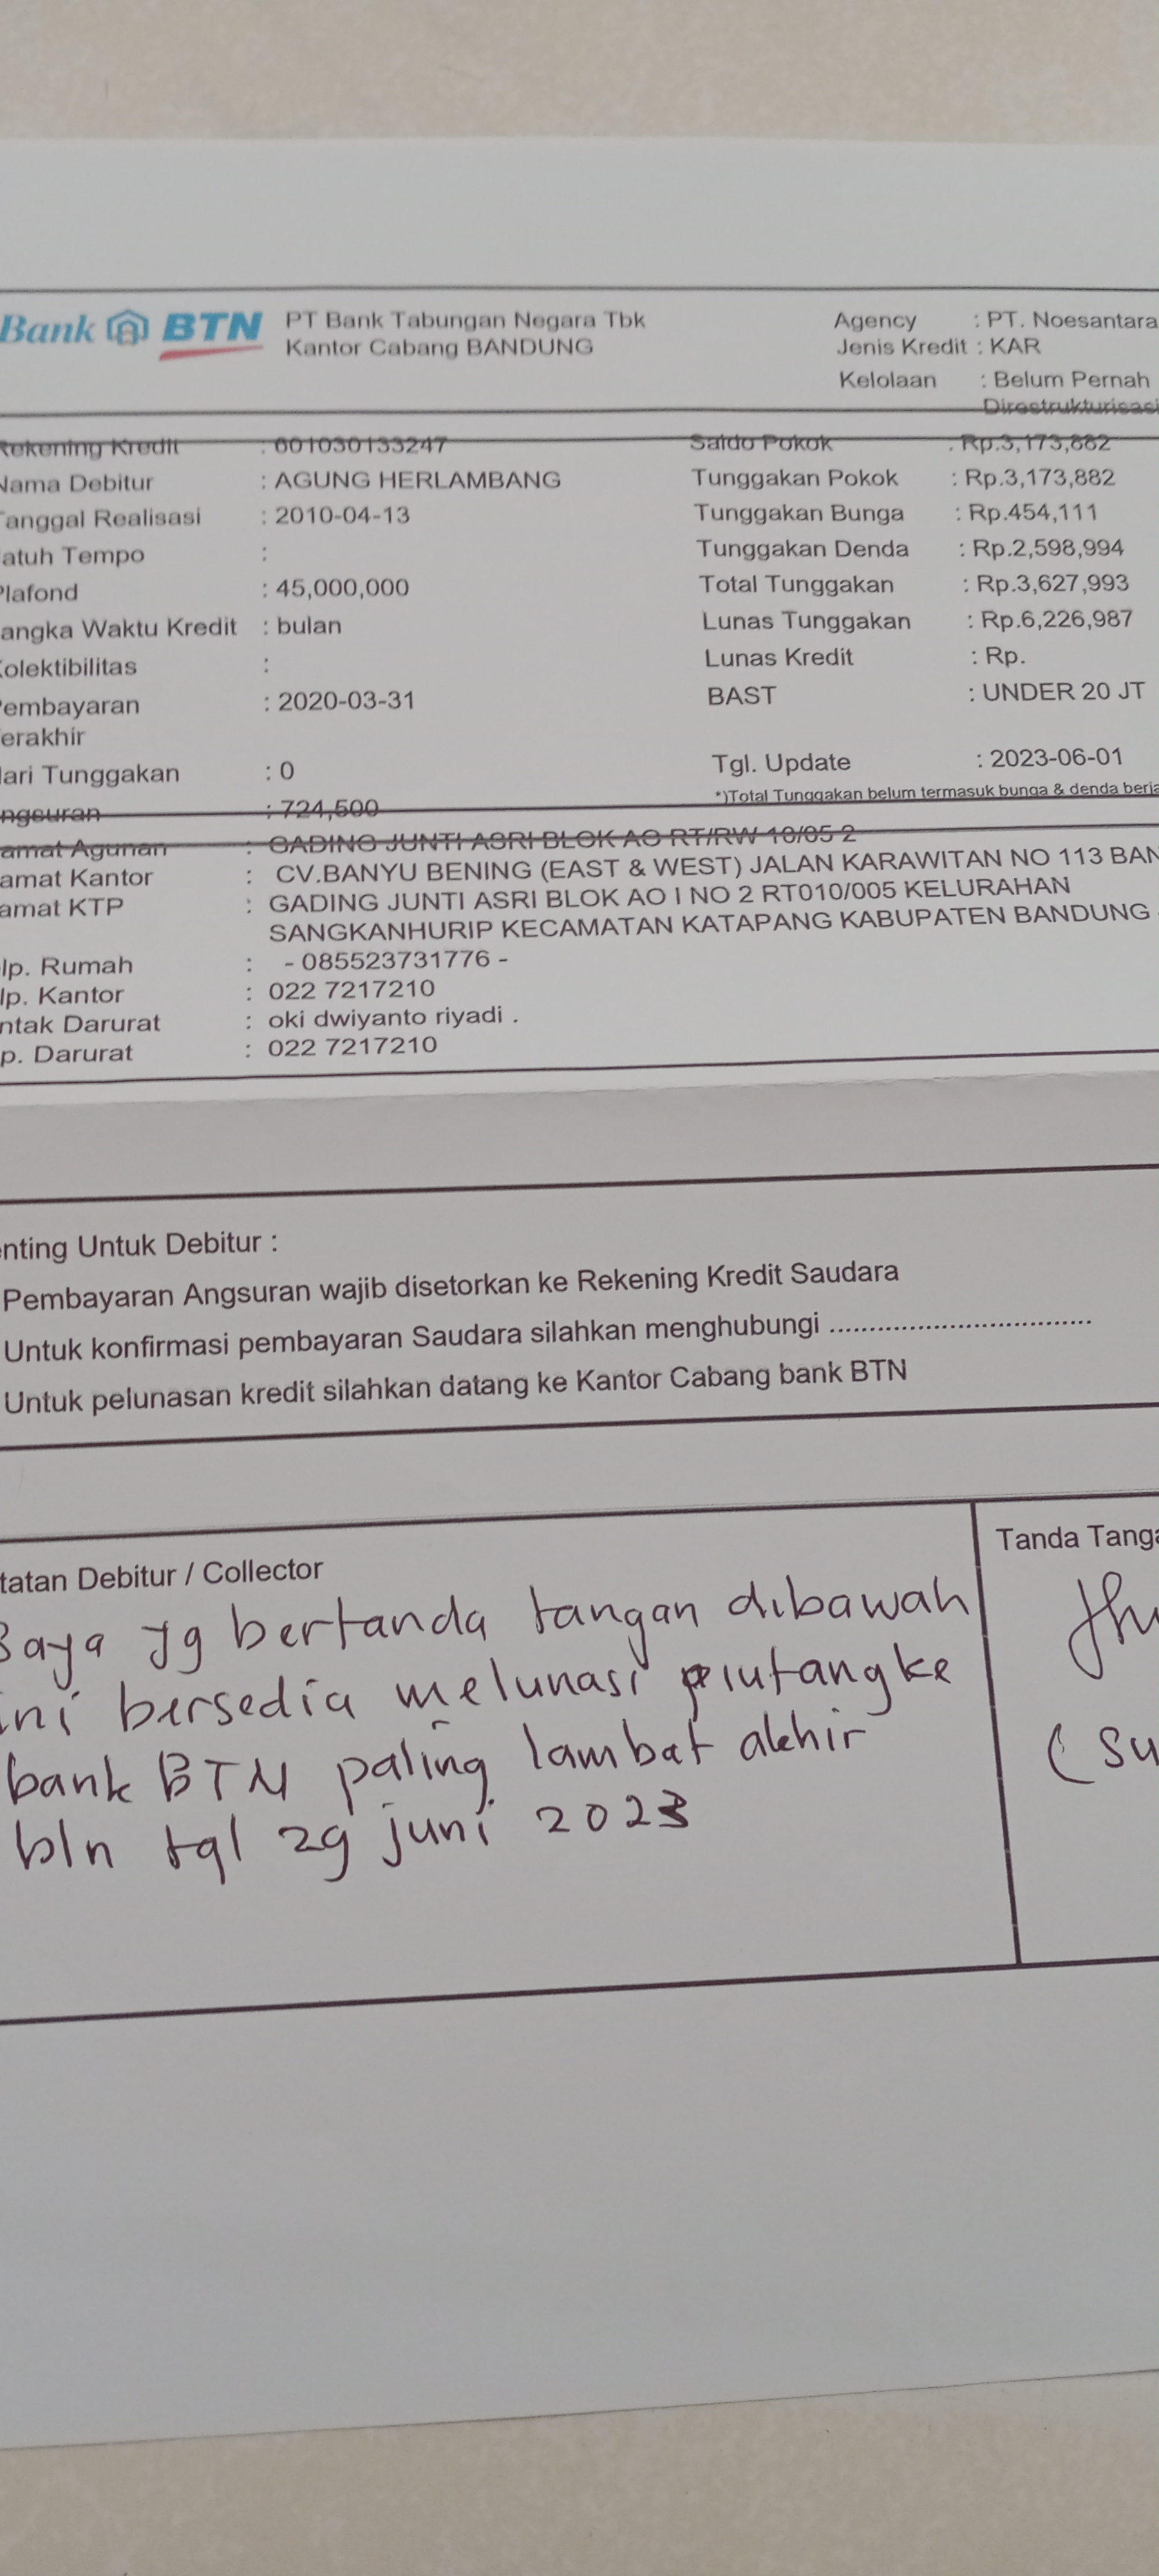 Bank BTN PT Bank Tabungan Negara Tbk Agency : PT. Noesantara
Kantor Cabang BANDUNG Jenis Kredit : KAR
Kelolaan : Belum Pernah
Direstrukturisasi
Rekening Kredit : 601030133247 Saldo Pokok : Rp.3,173,882
Nama Debitur : AGUNG HERLAMBANG Tunggakan Pokok : Rp.3,173,882
anggal Realisasi : 2010-04-13 Tunggakan Bunga : Rp.454,111
atuh Tempo : Tunggakan Denda : Rp.2,598,994
Plafond : 45,000,000 Total Tunggakan : Rp.3,627,993
angka Waktu Kredit : bulan Lunas Tunggakan : Rp.6,226,987
Kolektibilitas : Lunas Kredit : Rp.
embayaran : 2020-03-31 BAST : UNDER 20 JT
erakhir
ari Tunggakan : 0 Tgl. Update : 2023-06-01
ngsuran : 724,500 *)Total Tunggakan belum termasuk bunga & denda berja
amat Agunan : GADING JUNTI ASRI BLOK AO RT/RW 10/05 2
amat Kantor : CV.BANYU BENING (EAST & WEST) JALAN KARAWITAN NO 113 BAN
amat KTP : GADING JUNTI ASRI BLOK AO I NO 2 RT010/005 KELURAHAN
SANGKANHURIP KECAMATAN KATAPANG KABUPATEN BANDUNG
lp. Rumah : - 085523731776 -
lp. Kantor : 022 7217210
ntak Darurat : oki dwiyanto riyadi .
p. Darurat : 022 7217210
nting Untuk Debitur :
Pembayaran Angsuran wajib disetorkan ke Rekening Kredit Saudara
Untuk konfirmasi pembayaran Saudara silahkan menghubungi ................................
Untuk pelunasan kredit silahkan datang ke Kantor Cabang bank BTN
tatan Debitur / Collector Tanda Tanga
Saya yg bertanda tangan dibawah
ini bersedia melunasi piutang ke
bank BTN paling lambat akhir (Su
bln tgl 29 juni 2023